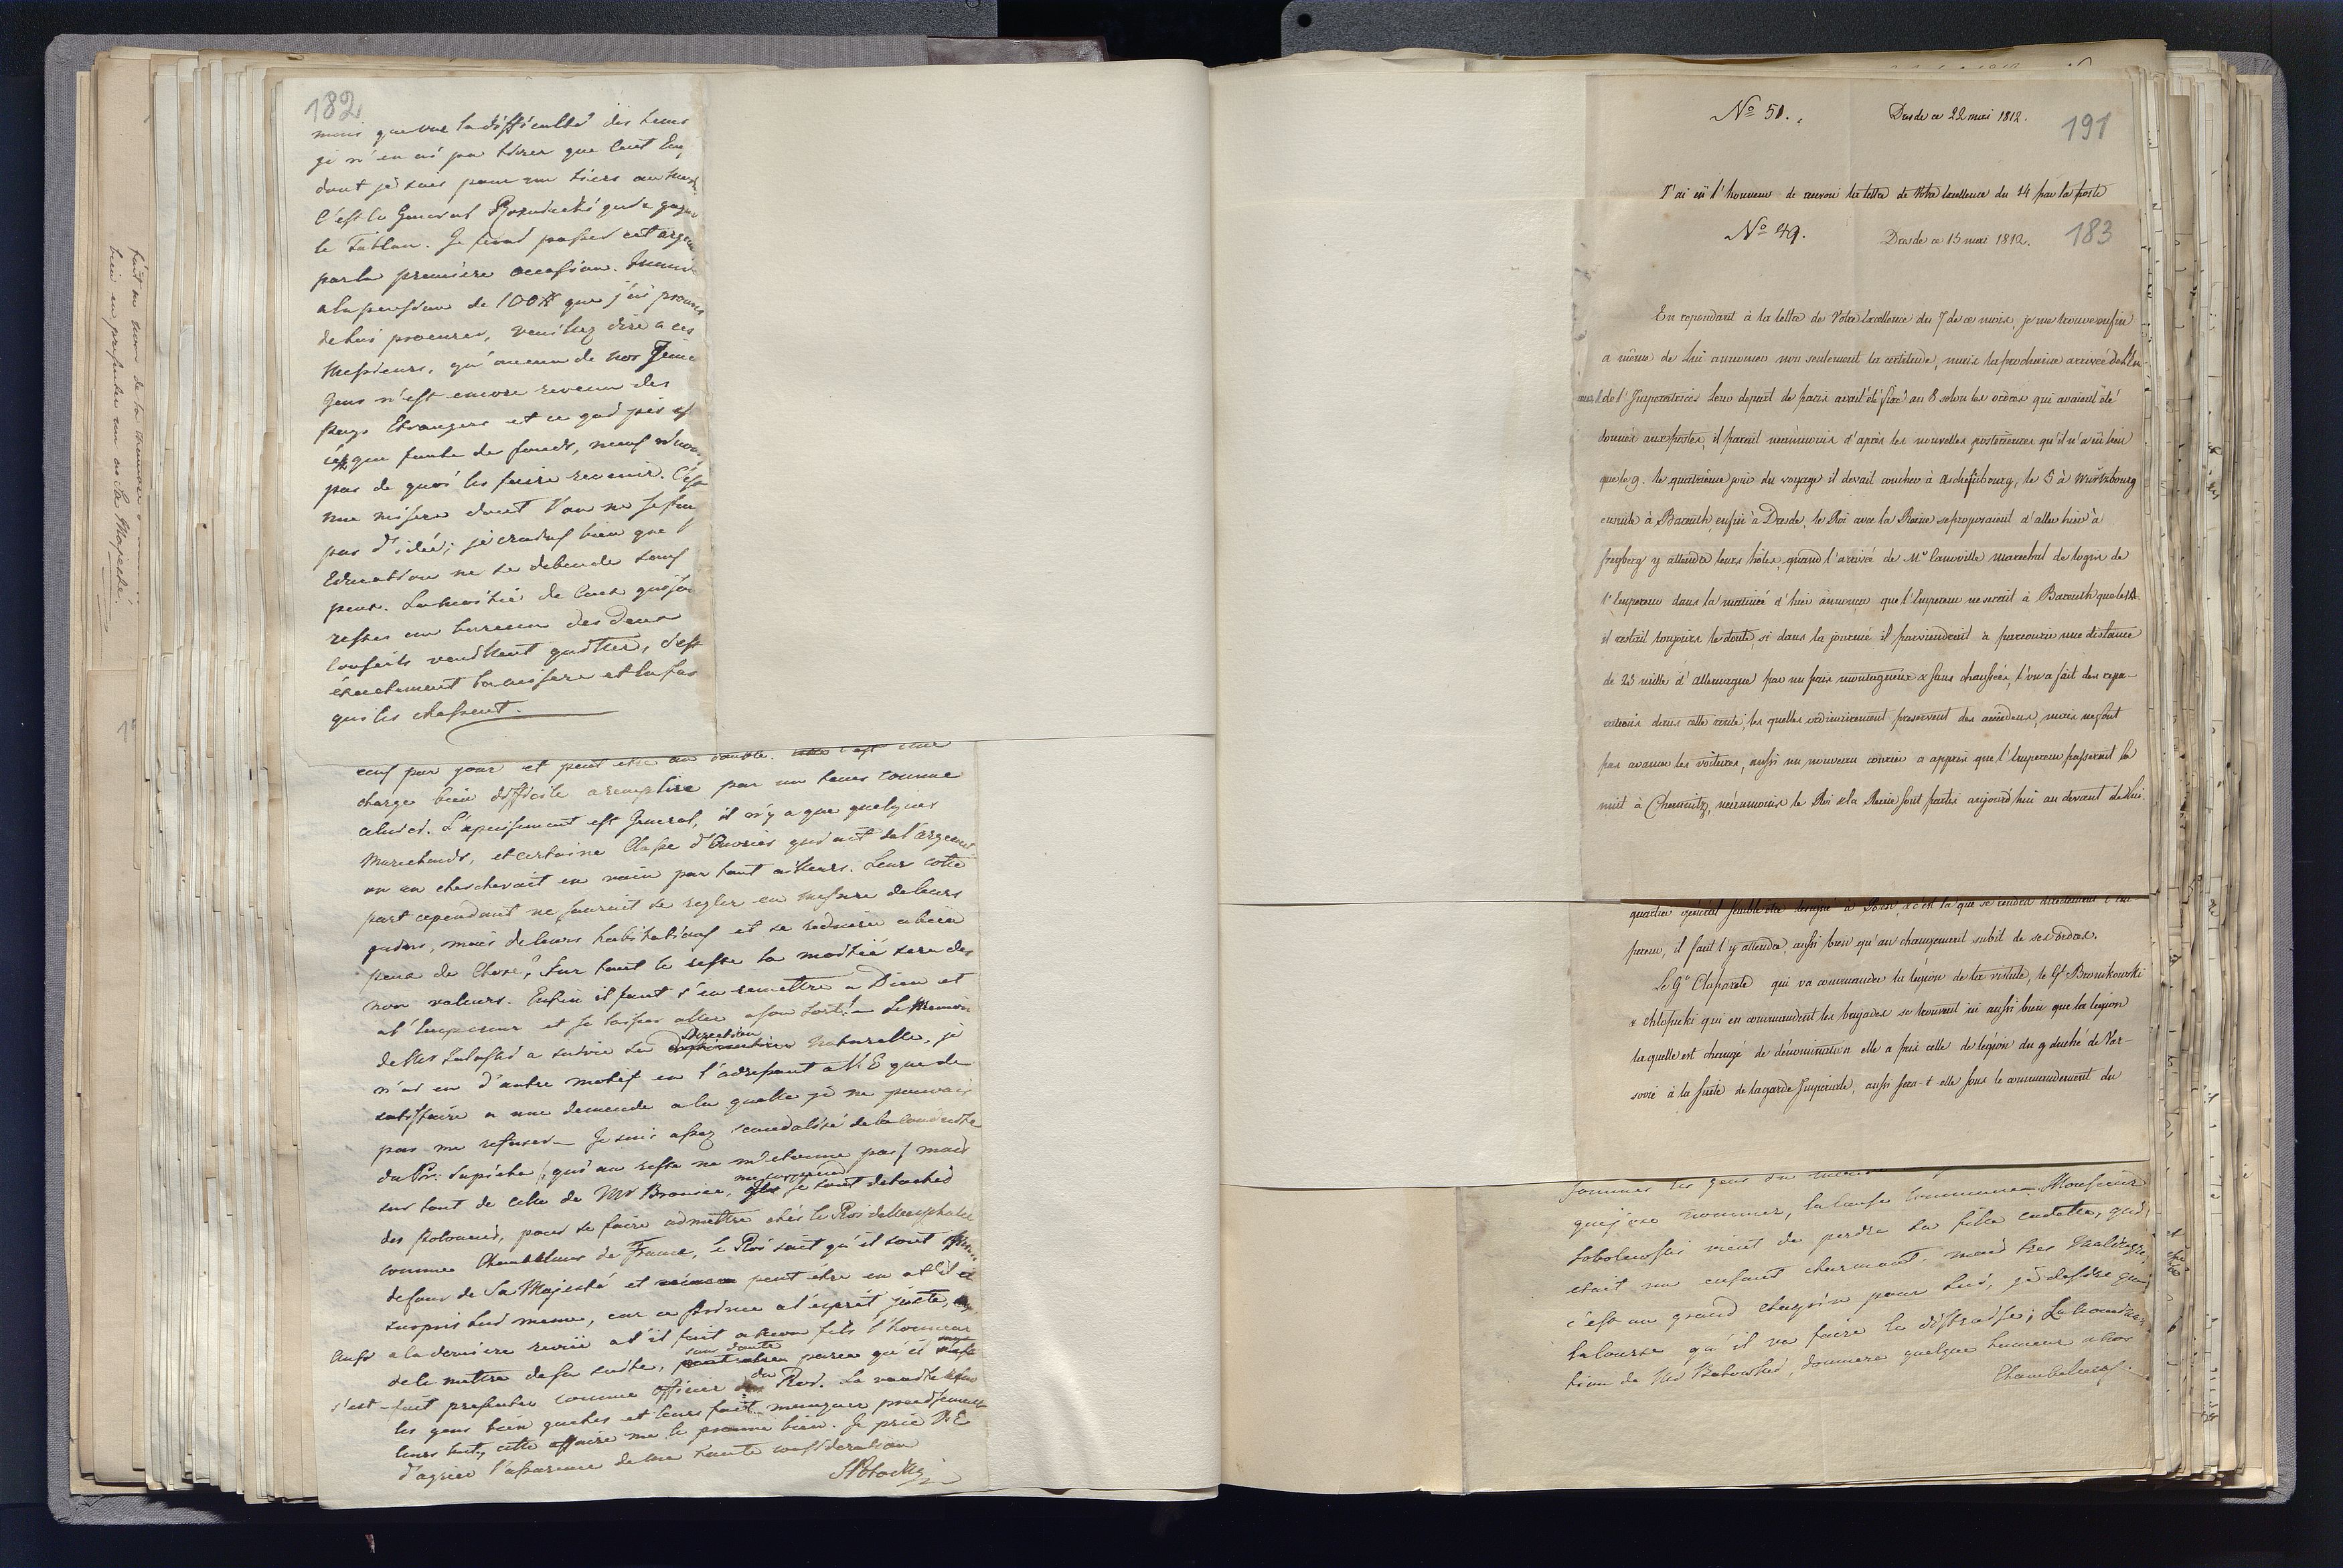 182
mais que vue la difficulté des tems
je n'en ai pu tirer que Cent
dont je suis pour un tiers au
C'est le General Rozniecki qui a gagné
le Tableau. Je ferai passer cet argent
par la premiere occasion.
a la pension de 100 # que j'ai promis
de lui procurer, veuillez dire a ces
Messieurs, qu'aucun de nos Jeunes
Gens n'est encore revenu des
Pays Etrangers et ce qui pis est
c'est que faute de fonds, nous n'avons
pas de quoi les faire revenir. C'est
une misere dont l'on ne se fait
pas d'idée; je crains bien que l'
Education ne se debande sous
peu. La moitié de ceux qui sont
restés au bureau des deux
Conseils veullent quitter, c'est
éxactement la misere et la faim
qui les chassent.
par jour et peut etre au double. c'est une
charge bien difficile a remplire par un tems comme
celui ci. L'epuisement est General, il n'y a que quelques
Marchands, et certaine Classe d'Ouvriers qui ont de l'argent
on en chercherait en vain par tout ailleurs. Leur cotte
part cependant ne sauroit se regler en mesure de leurs
gains, mais de leurs habitations et se reduira a bien
peu de Chose, Sur tout le reste la moitié sera des
non valeurs. Enfin il faut s'en remettre a Dieu et
a l'Empereur et se laisser aller a son sort! – Le Memoire
de Mr a suivie sa Direction Naturelle, je
n'ai eu d'autre motif en l'adressant a V.E que de
satisfaire a une demande a la quelle je ne pouvais
pas me refuser – Je suis assez scandalisé de la conduitte
du Pr: Sapieha (qui au reste ne m'etonne pas) mais
sur tout de celle de Mr Bronice, me surprend se sont detachés
des Polonais, pour se faire admettre chés le Roi de Westphalie
comme Chambellans de France, le Roi sait qu'il sont
de ceux de Sa Majesté et peut être en a t'il été
surpris lui meme, car ce Prince a l'esprit juste,
Aussi a la derniere revüe a t'il fait a mon fils l'honneur
de le mettre de sa suitte, sans doute parce qu'il
s'est fait presenter comme officier du Roi. La vanité
les gens bien gauches et leurs fait manquer
leurs but, cette affaire me le prouve bien. Je prie V.E
d'agréer l'assurance de ma haute consideration
SPotocki
fait au nom de la
bien en presenter un a Sa Majesté.
191
No 50. Dresde ce 22 mai 1812.
J'ai eü l'honneur de recevoir la lettre de Votre Excellence du 14 par la poste
183
No 49. Dresde ce 15 mai 1812.
En repondant à la lettre de Votre Excellence du 7 de ce mois, je me trouve enfin
a même de Lui annoncer non seulement la certitude, mais la prochaine arrivée de l'Em-
de l'Imperatrice. Leur depart de paris avait été fixé au 8 selon les ordres qui avaient été
donnés aux postes, il parait neanmoins d'après les nouvelles posterieures qu'il n'a eü lieu
que le 9. le quatrième jour du voyage il devait coucher à Aschaffbourg, le 5 à Würtzbourg
ensuite à Bareuth, enfin à Dresde, le Roi avec la Reine se proposaient d'aller hier à
freyberg y attendre leurs hôtes, quand l'arrivée de Mr Canoville marechal de logis de
l'Empereur dans la matinée d'hier annonça que l'Empereur ne serait à Bareuth que le
il restait toujours le doute, si dans la journée il parviendrait à parcourir une distance
de 25 mille d'Allemagne par un pais montagneux & sans chaussées, l'on a fait des repa-
rations dans cette route, les quelles ordinairement preservent des accidens, mais ne font
pas avancer les voitures, aussi un nouveau courier a appris que l'Empereur passerait la
nuit à Chemnitz, néanmoins le Roi & la Reine sont partis aujourd'hui au devant de Lui.
quartier général semble être designé à Posen, & c'est là que se rendra
pereur, il faut l'y attendre, aussi bien qu'au changement subit de ses ordres.
Le Gl Claparede qui va commander la legion de la vistule, le Gl Bronikowski
& Chlopicki qui en commandent les brigades se trouvent ici aussi bien que la legion
la quelle est changé de dénomination elle a pris celle de legion du g duché de Var-
sovie à la suite de la garde Imperiale, aussi sera-t-elle sous le commandement du
sommes les gens du
que j'ose nommer, la cause Commune. Monsieur
Sobolewski vient de perdre sa fille cadette, qui
etait un enfant charmant, mais tres
c'est un grand chagrin pour lui, je desire que
la course qu'il va faire le distraise;
tion de Mr donnera quelque humeur a
Chambelans.